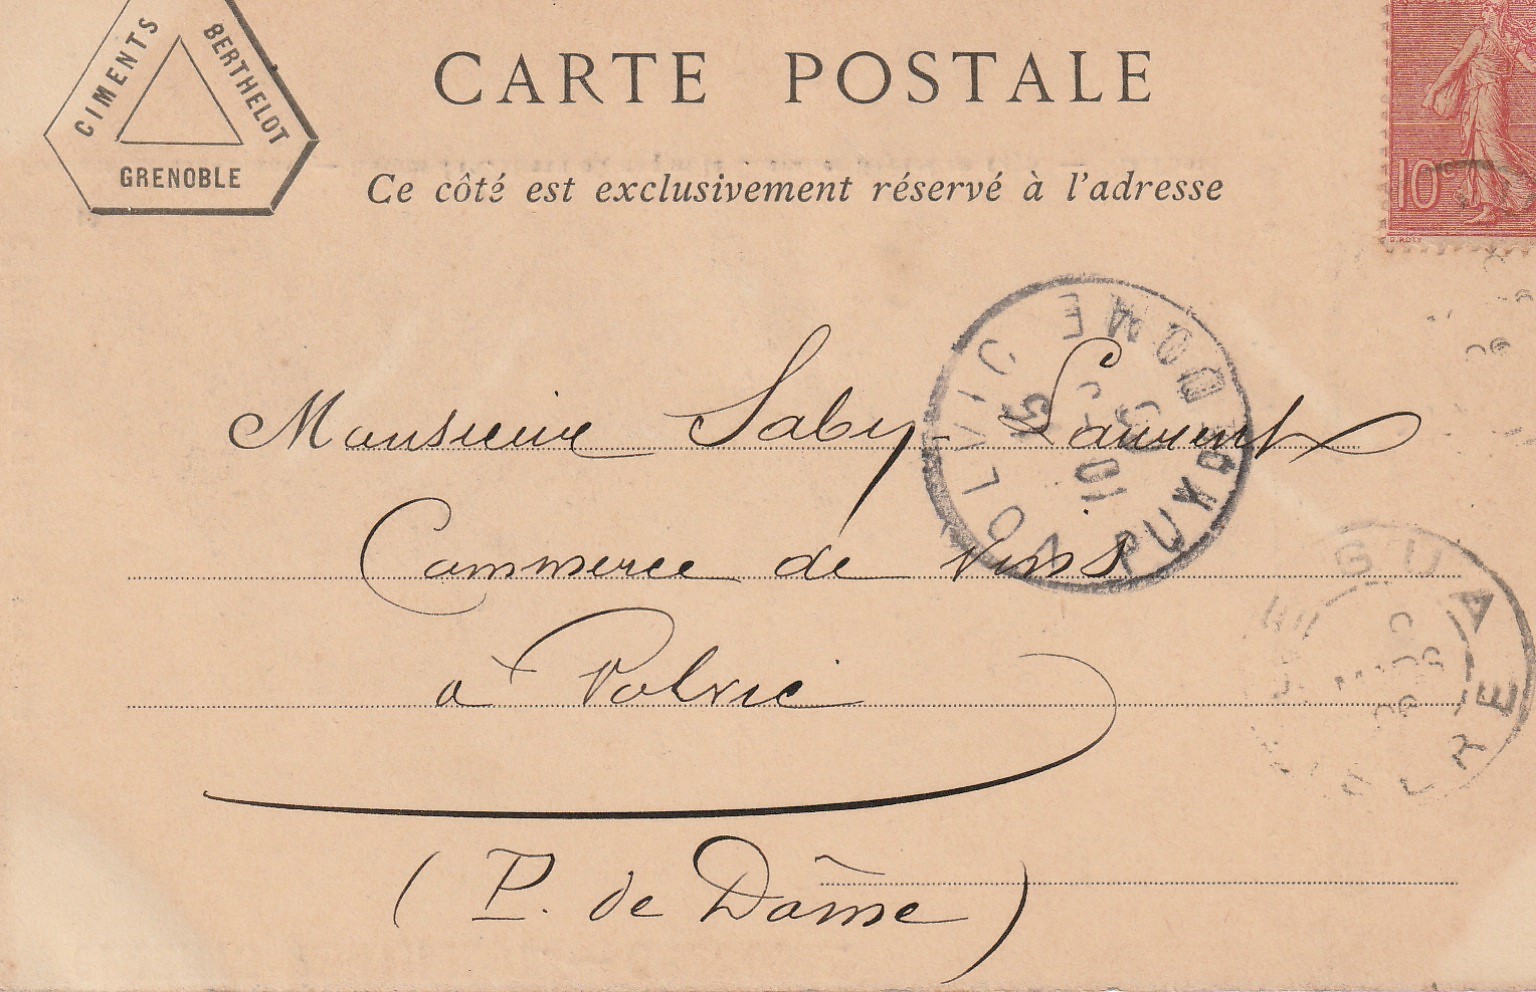 CIMENTS BERTHELOT
GRENOBLE
CARTE POSTALE
Ce côté est exclusivement réservé à l'adresse
10
O. ROTY
Monsieur Saby-Laurent
Commerce de Vins
à Volvic
(P. de Dôme)
VOLVIC PUY DE DOME
10
LA GUA
ISERE
06